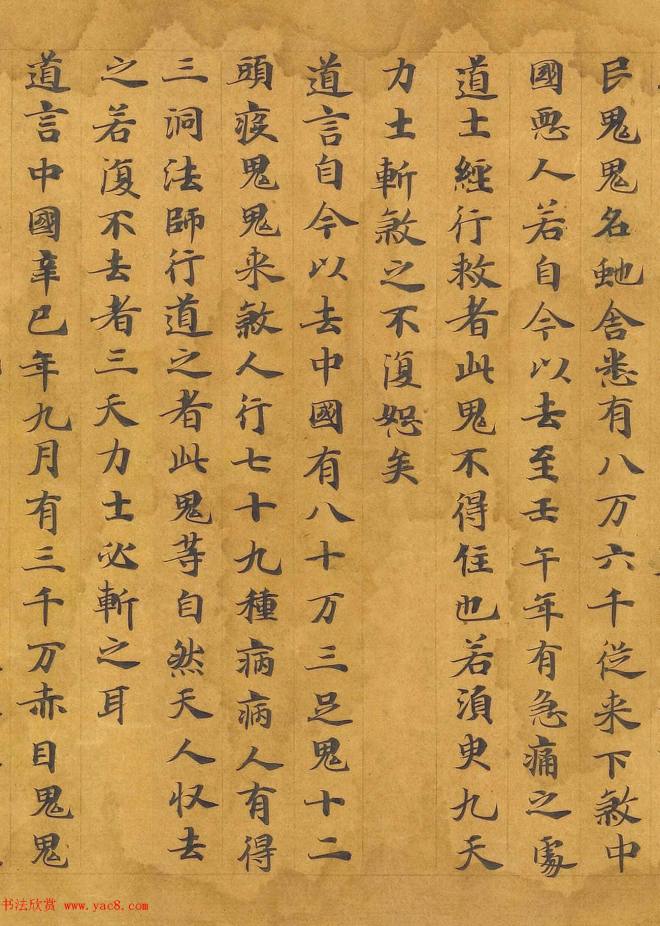 民鬼鬼名虵舍悉有八万六千從来下煞中
國惡人若自今以去至壬午年有急痛之處
道士經行救者此鬼不得住也若湏臾九天
力士斬煞之不復恕矣
道言自今以去中國有八十万三足鬼十二
頭疫鬼鬼来煞人行七十九種病病人有得
三洞法師行道之者此鬼等自然天人収去
之若復不去者三天力士必斬之耳
道言中國辛巳年九月有三千万赤目鬼鬼
书法欣赏 www.yac8.com